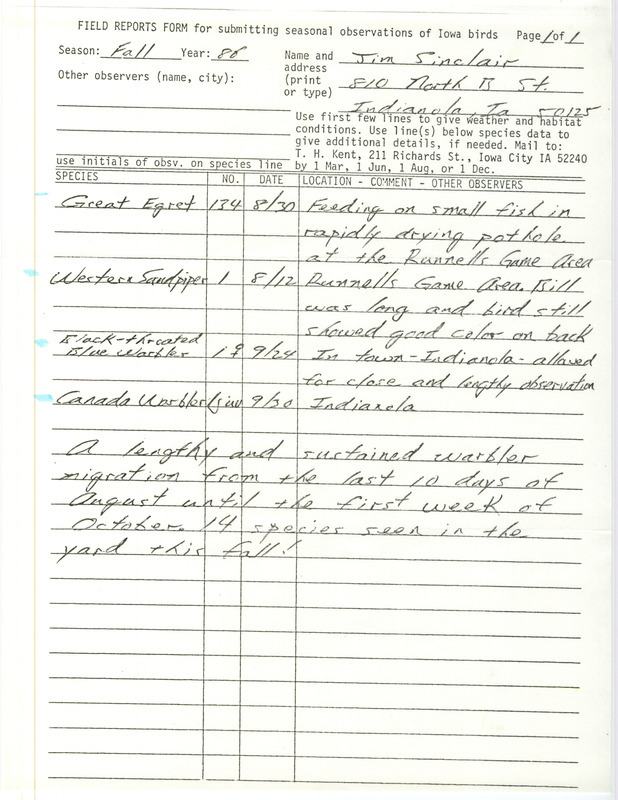 FIELD REPORTS FORM for submitting seasonal observations of Iowa birds Page 1 of 1
Season: Fall Year: 86
Name and address (print or type) Jim Sinclair
810 North B St.
Indianola, Ia 50125
Other observers (name, city):
Use first few lines to give weather and habitat
conditions. Use line(s) below species data to
give additional details, if needed. Mail to:
T. H. Kent, 211 Richards St., Iowa City IA 52240
by 1 Mar, 1 Jun, 1 Aug, or 1 Dec.
use initials of obsv. on species line
SPECIES NO. DATE LOCATION - COMMENT - OTHER OBSERVERS
Great Egret 134 8/30 Feeding on small fish in
rapidly drying pothole
at the Runnells Game Area
Western Sandpiper 1 8/12 Runnells Game Area. Bill
was long and bird still
showed good color on back
Black-throated
Blue Warbler 1♀ 9/24 In town-Indianola-allowed
for close and lengthy observation
Canada Warbler 1juv 9/30 Indianola
A lengthy and sustained warbler
migration from the last 10 days of
August until the first week of
October. 14 species seen in the
yard this fall!